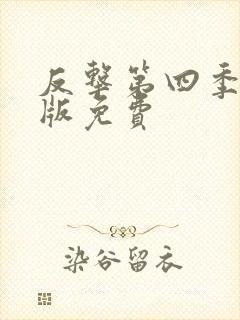 反擊第四季
版免費
染谷留衣